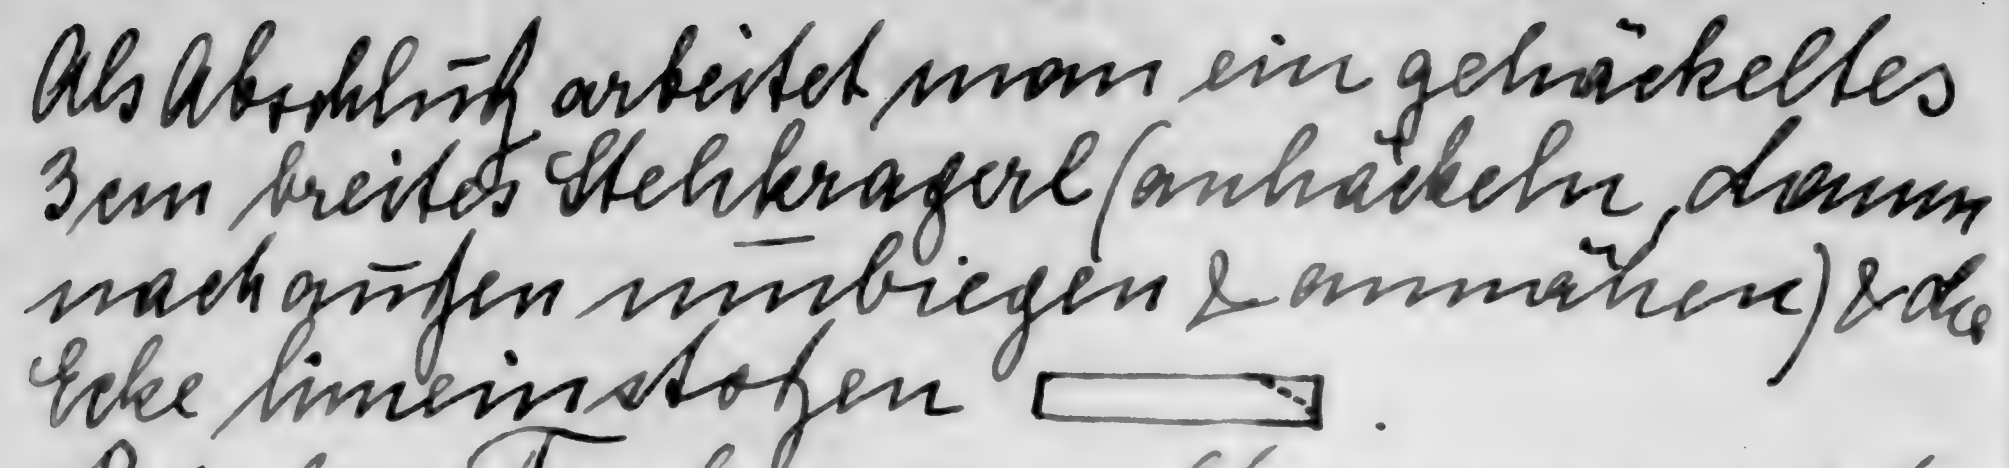 Als Abschluß arbeitet man ein gehäckeltes
3 cm breites Stehkragerl (anhäckeln, dann
nach außen umbiegen & annähen) & die
Ecke hineinstoßen .